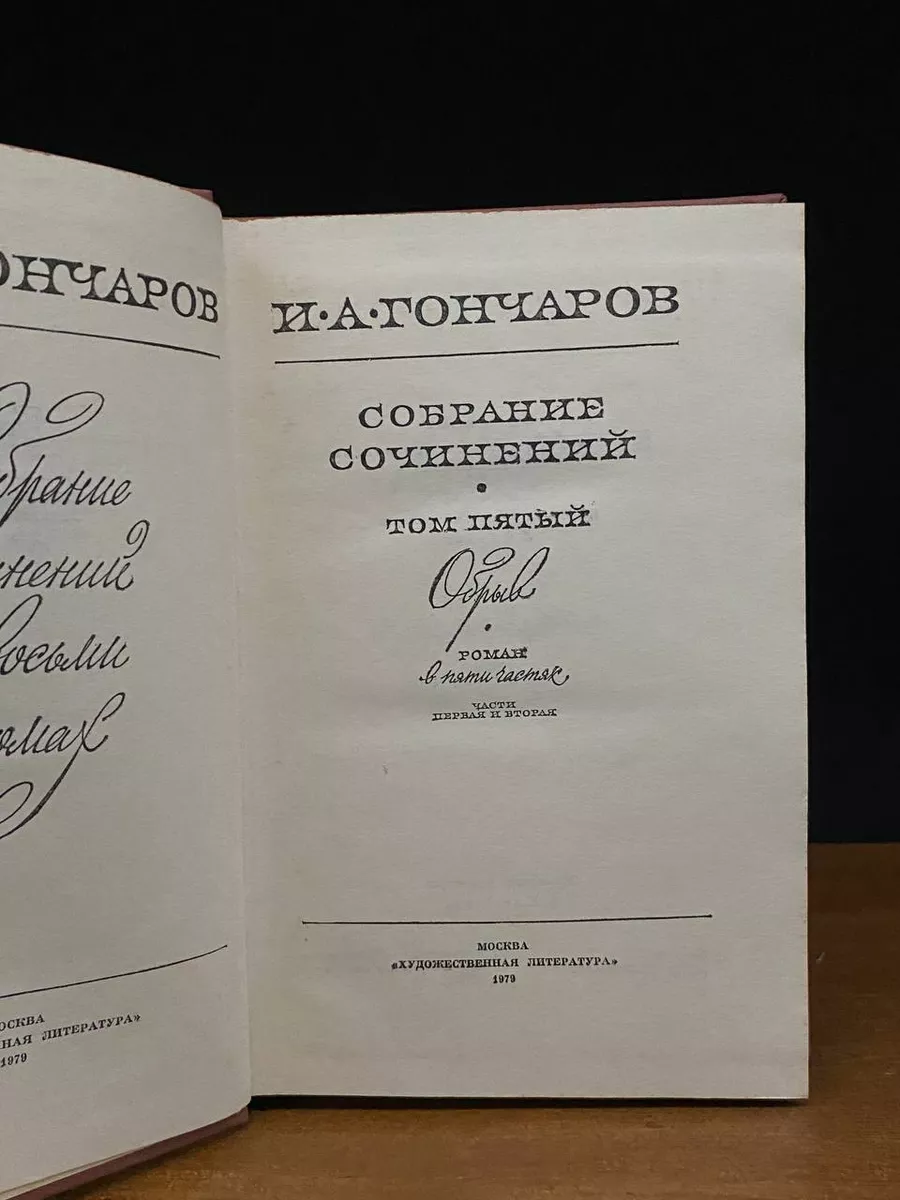 ОНЧАРОВ
брание
нений
восьми
омах
ОСКВА
ННАЯ ЛИТЕРАТУРА»
1979
И·А·ГОНЧАРОВ
СОБРАНИЕ
СОЧИНЕНИЙ
ТОМ ПЯТЫЙ
Обрыв
РОМАН
в пяти частях
ЧАСТИ
ПЕРВАЯ И ВТОРАЯ
МОСКВА
«ХУДОЖЕСТВЕННАЯ ЛИТЕРАТУРА»
1979